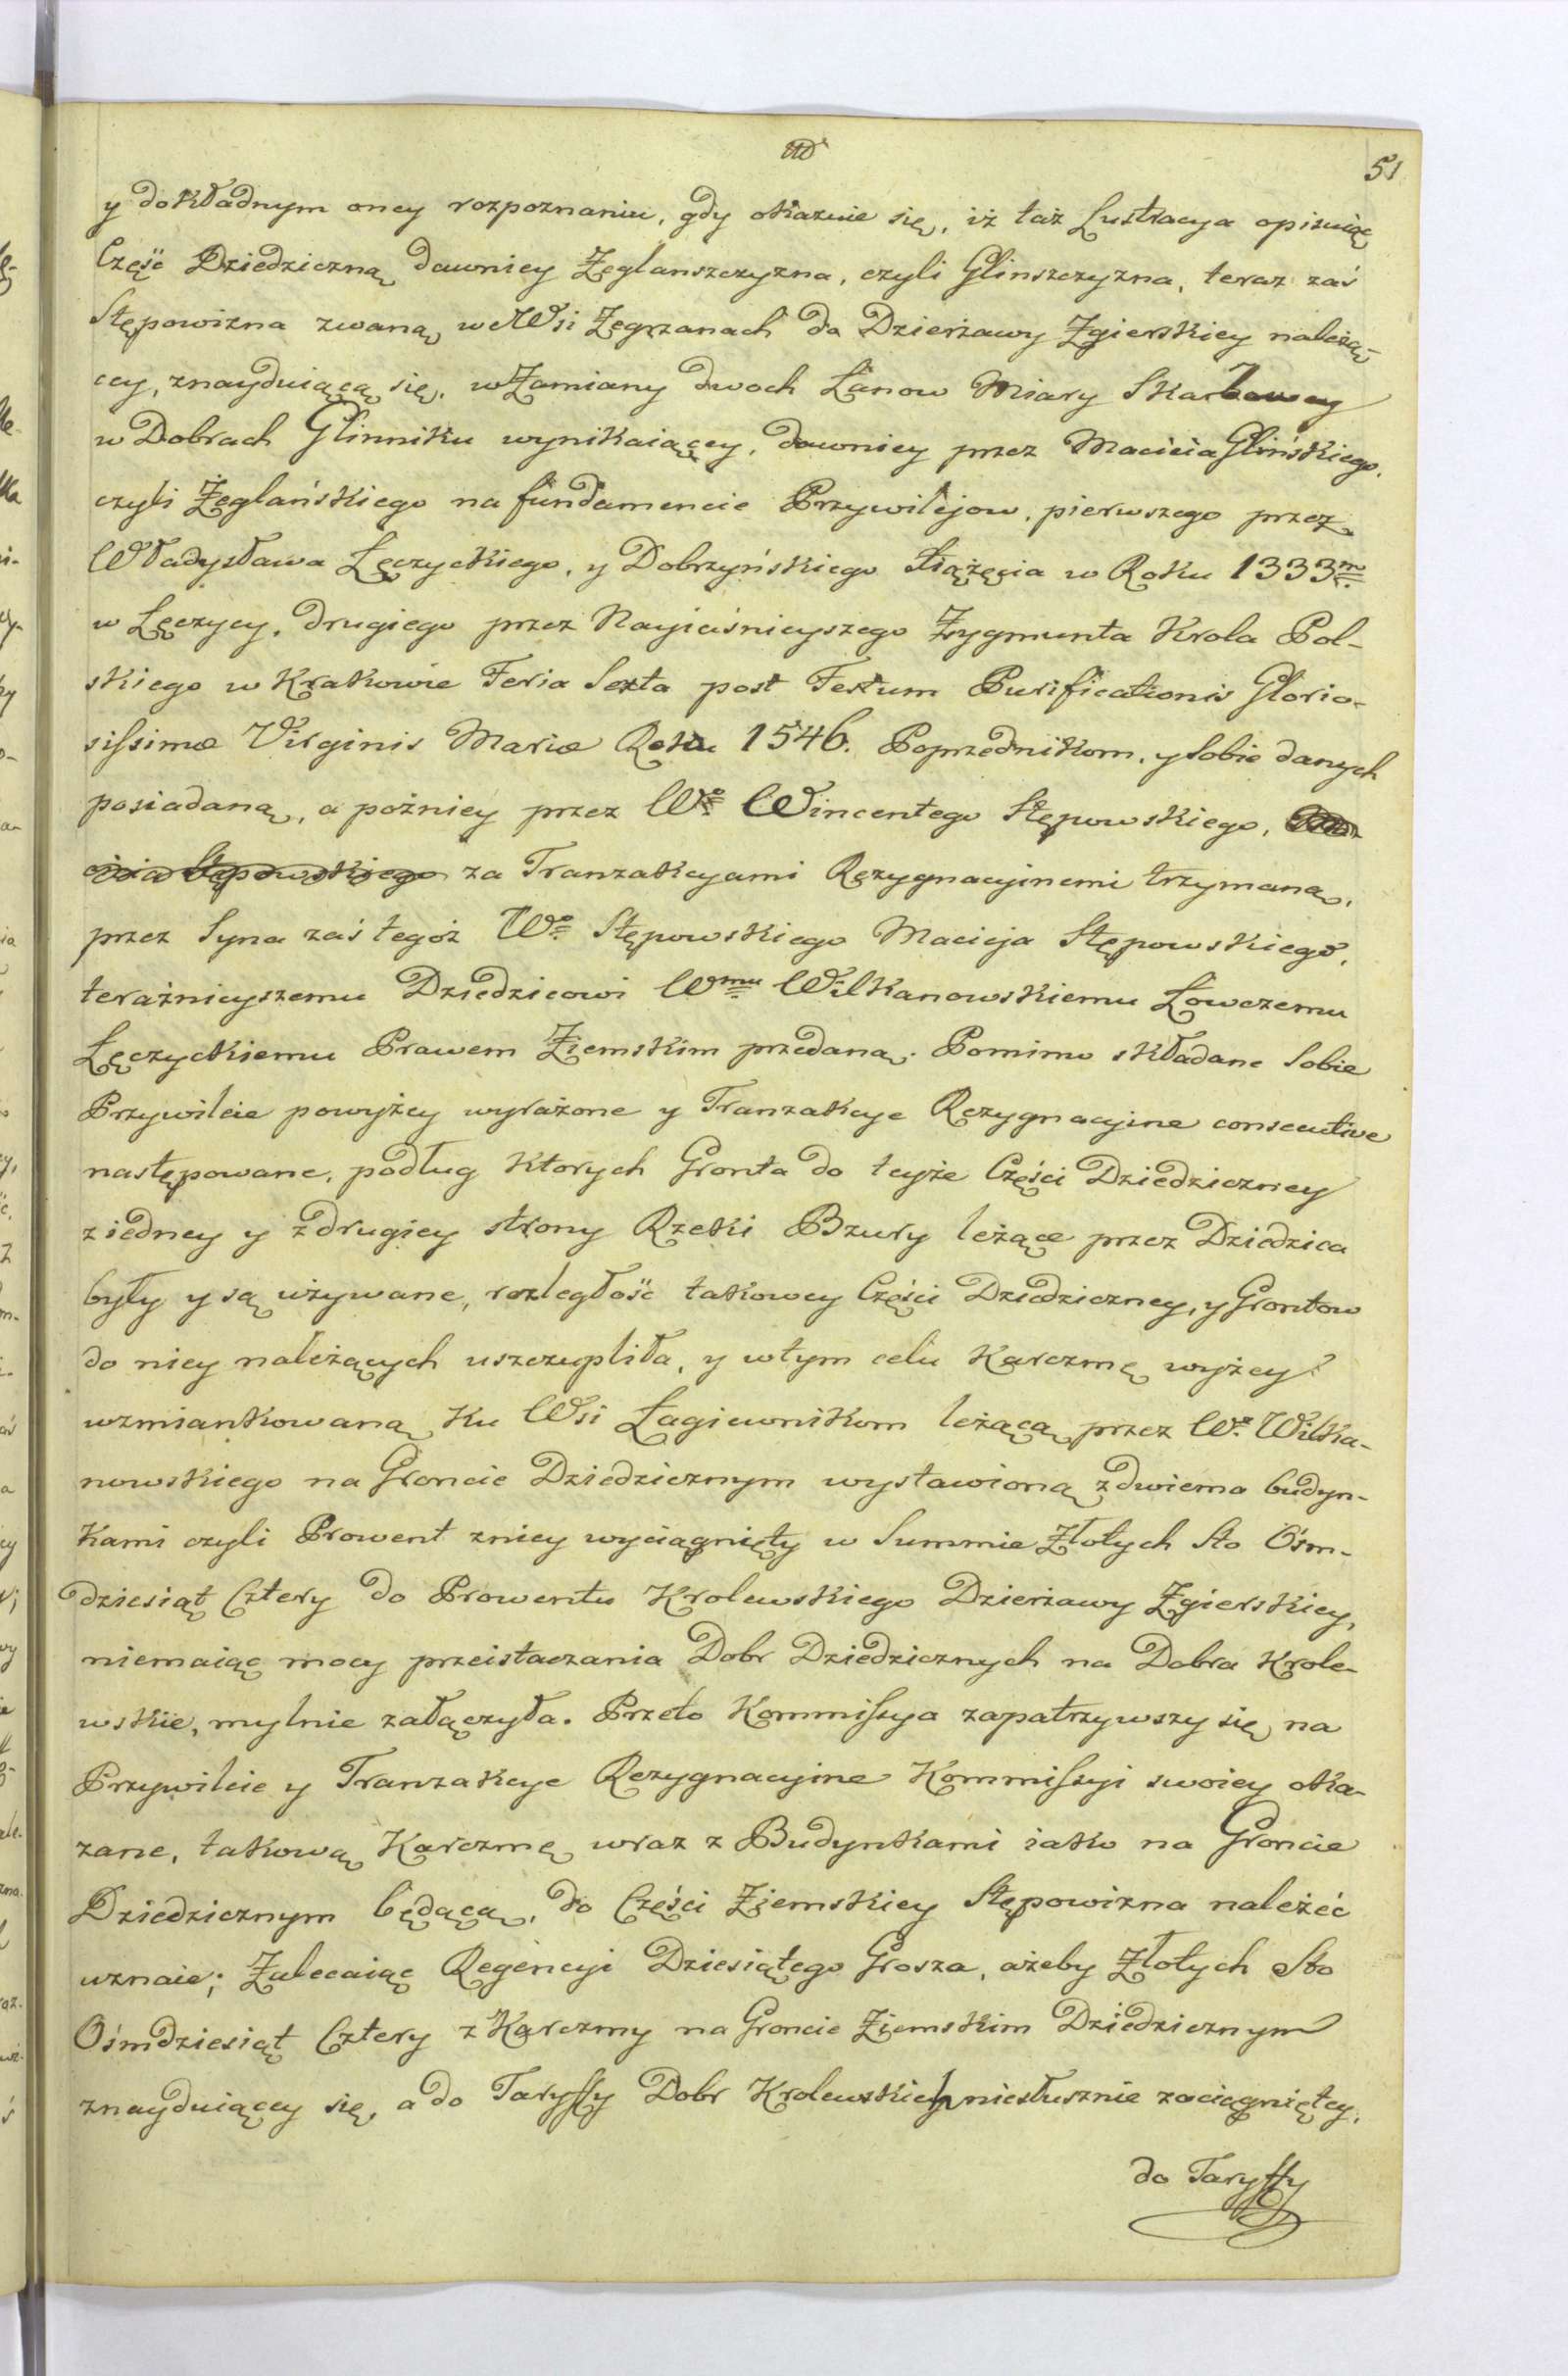 51
y dokładnym oney rozpoznaniu, gdy okazuie się, iż taż Lustracya opisuiąc
Część Dziedziczną dawniey Zeglanszczyzna, czyli Glinszczyzna, teraz zaś
Stępowizna zwaną, we Wsi Zegrzanach do Dzierżawy Zgierskiey należą-
cey, znayduiącą się, w Zamiany dwoch Łanow Miary Skarbowey
w Dobrach Glinniku wynikaiącey, dawniey przez Macieia Glińskiego,
czyli Żeglańskiego na fundamencie Przywilejow, pierwszego przez
Władysława Łęczyckiego, y Dobrzyńskiego Xiążęcia w Roku 1333m
w Łęczycy, drugiego przez Nayiaśnieyszego Zygmunta Krola Pol-
skiego w Krakowie Feria Sexta post Festum Purificationis Glorio-
sissimæ Virginis Mariæ Roku 1546. Poprzednikom, y Sobie danych
posiadaną, a poźniey przez Wo Wincentego Stępowskiego,
cieia Stępowskiego za Tranzakcyami Rezygnacyinemi trzymaną,
przez Syna zaś tegoż Wo Stępowskiego Macieja Stępowskiego,
teraźnieyszemu Dziedzicowi Wmu Wilkanowskiemu Łowczemu
Łęczyckiemu Prawem Ziemskim przedaną. Pomimo składane Sobie
Przywileie powyżey wyrażone y Tranzakcye Rezygnacyine consecutive
następowane, podług ktorych Gronta do teyże Części Dziedziczney
z iedney y z drugiey strony Rzeki Bzury leżące przez Dziedzica
były y są używane, rozległość takowey Części Dziedziczney, y Grontow
do niey należących uszczupliła, y w tym celu Karczmę wyżey
wzmiankowaną ku Wsi Łagiewnikom leżącą przez Wo Wilka-
nowskiego na Groncie Dziedzicznym wystawioną z dwiema budyn-
kami czyli Prowent z niey wyciągnięty w Summie Złotych Sto Ośm-
dziesiąt Cztery do Prowentu Krolewskiego Dzierżawy Zgierskiey,
niemaiąc mocy przeistaczania Dobr Dziedzicznych na Dobra Krole-
wskie, mylnie załączyła. Przeto Kommissya zapatrzywszy się na
Przywileie y Tranzakcye Rezygnacyine Kommissyi swoiey oka-
zane, takową Karczmę wraz z Budynkami iako na Groncie
Dziedzicznym będącą, do Części Ziemskiey Stępowizna należeć
uznaie; Zalecaiąc Regencyi Dziesiątego Grosza, ażeby Złotych Sto
Ośmdziesiąt Cztery z Karczmy na Groncie Ziemskim Dziedzicznym
znayduiącey się, a do Taryffy Dobr Krolewskich niesłusznie zaciągniętey,
do Taryffy